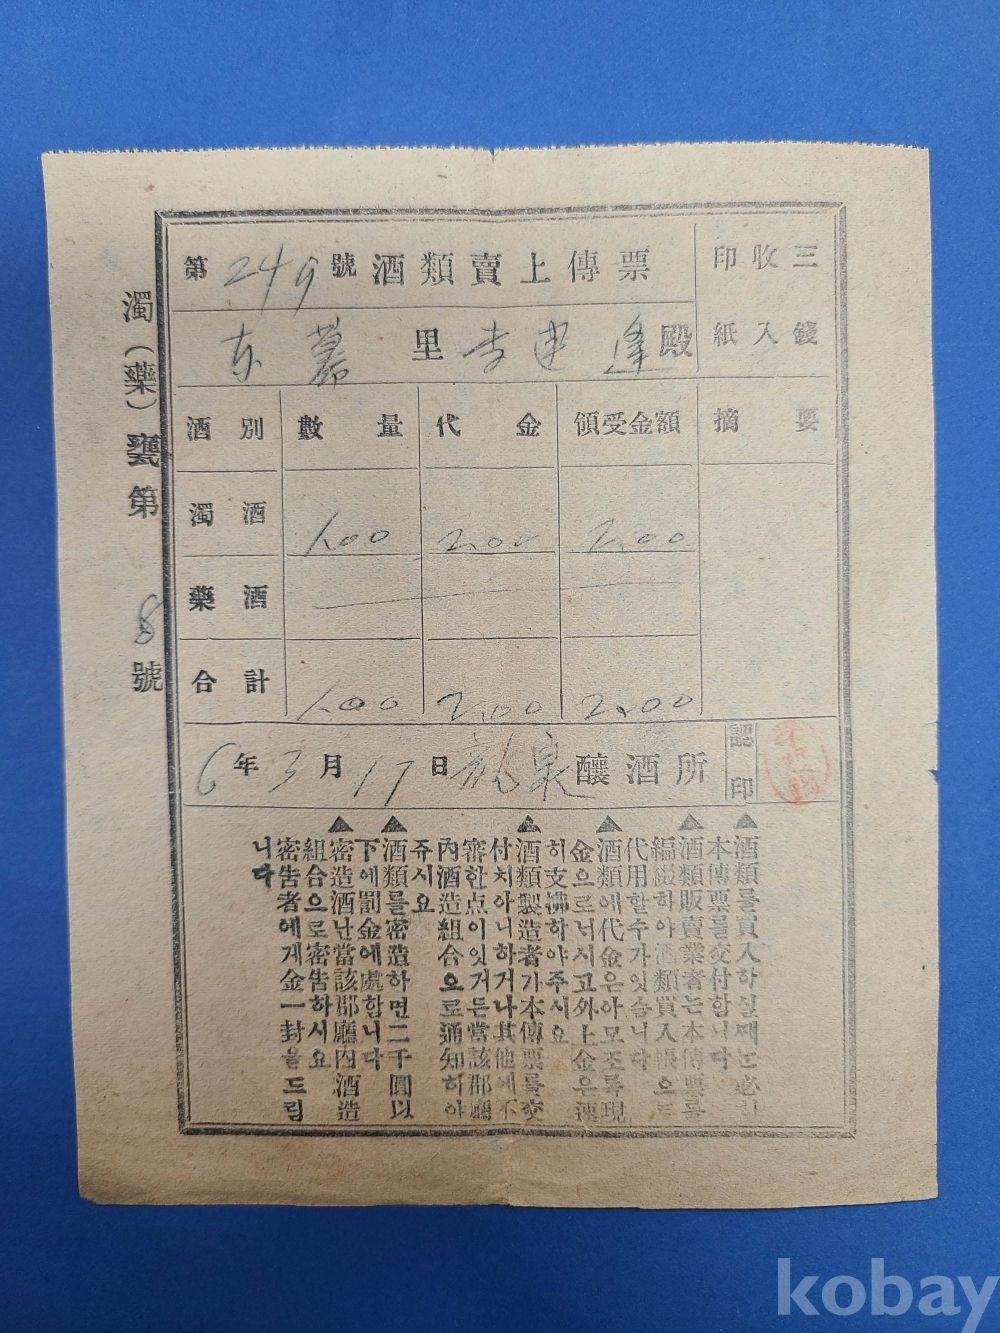 第249號 酒類賣上傳票
三錢
收入
印紙
里 李 逢 殿
酒別 數量 代金 領受金額 摘要
濁酒 1.00 2.00 2.00
藥酒
合計 1.00 2.00 2.00
6年3月17日 龍泉 釀酒所 認印
濁(藥)甕第 8 號
▲酒類를買入하실때는必히
本傳票를交付합니다
▲酒類販賣業者는本傳票를
編綴하야酒類買入帳으로
代用할수가잇습니다
▲酒類에代金은아모조록現
金으로너시고外上金은速
히支拂하야주시요
▲酒類製造者가本傳票를交
付치아니하거나其他에不
審한点이잇거든當該郡廳
內酒造組合으로通知하야
쥬시요
▲酒類를密造하면二千圓以
下에罰金에處합니다
▲密造酒난當該郡廳內酒造
組合으로密告하시요
密告者에게金一封을드림
니다
kobay